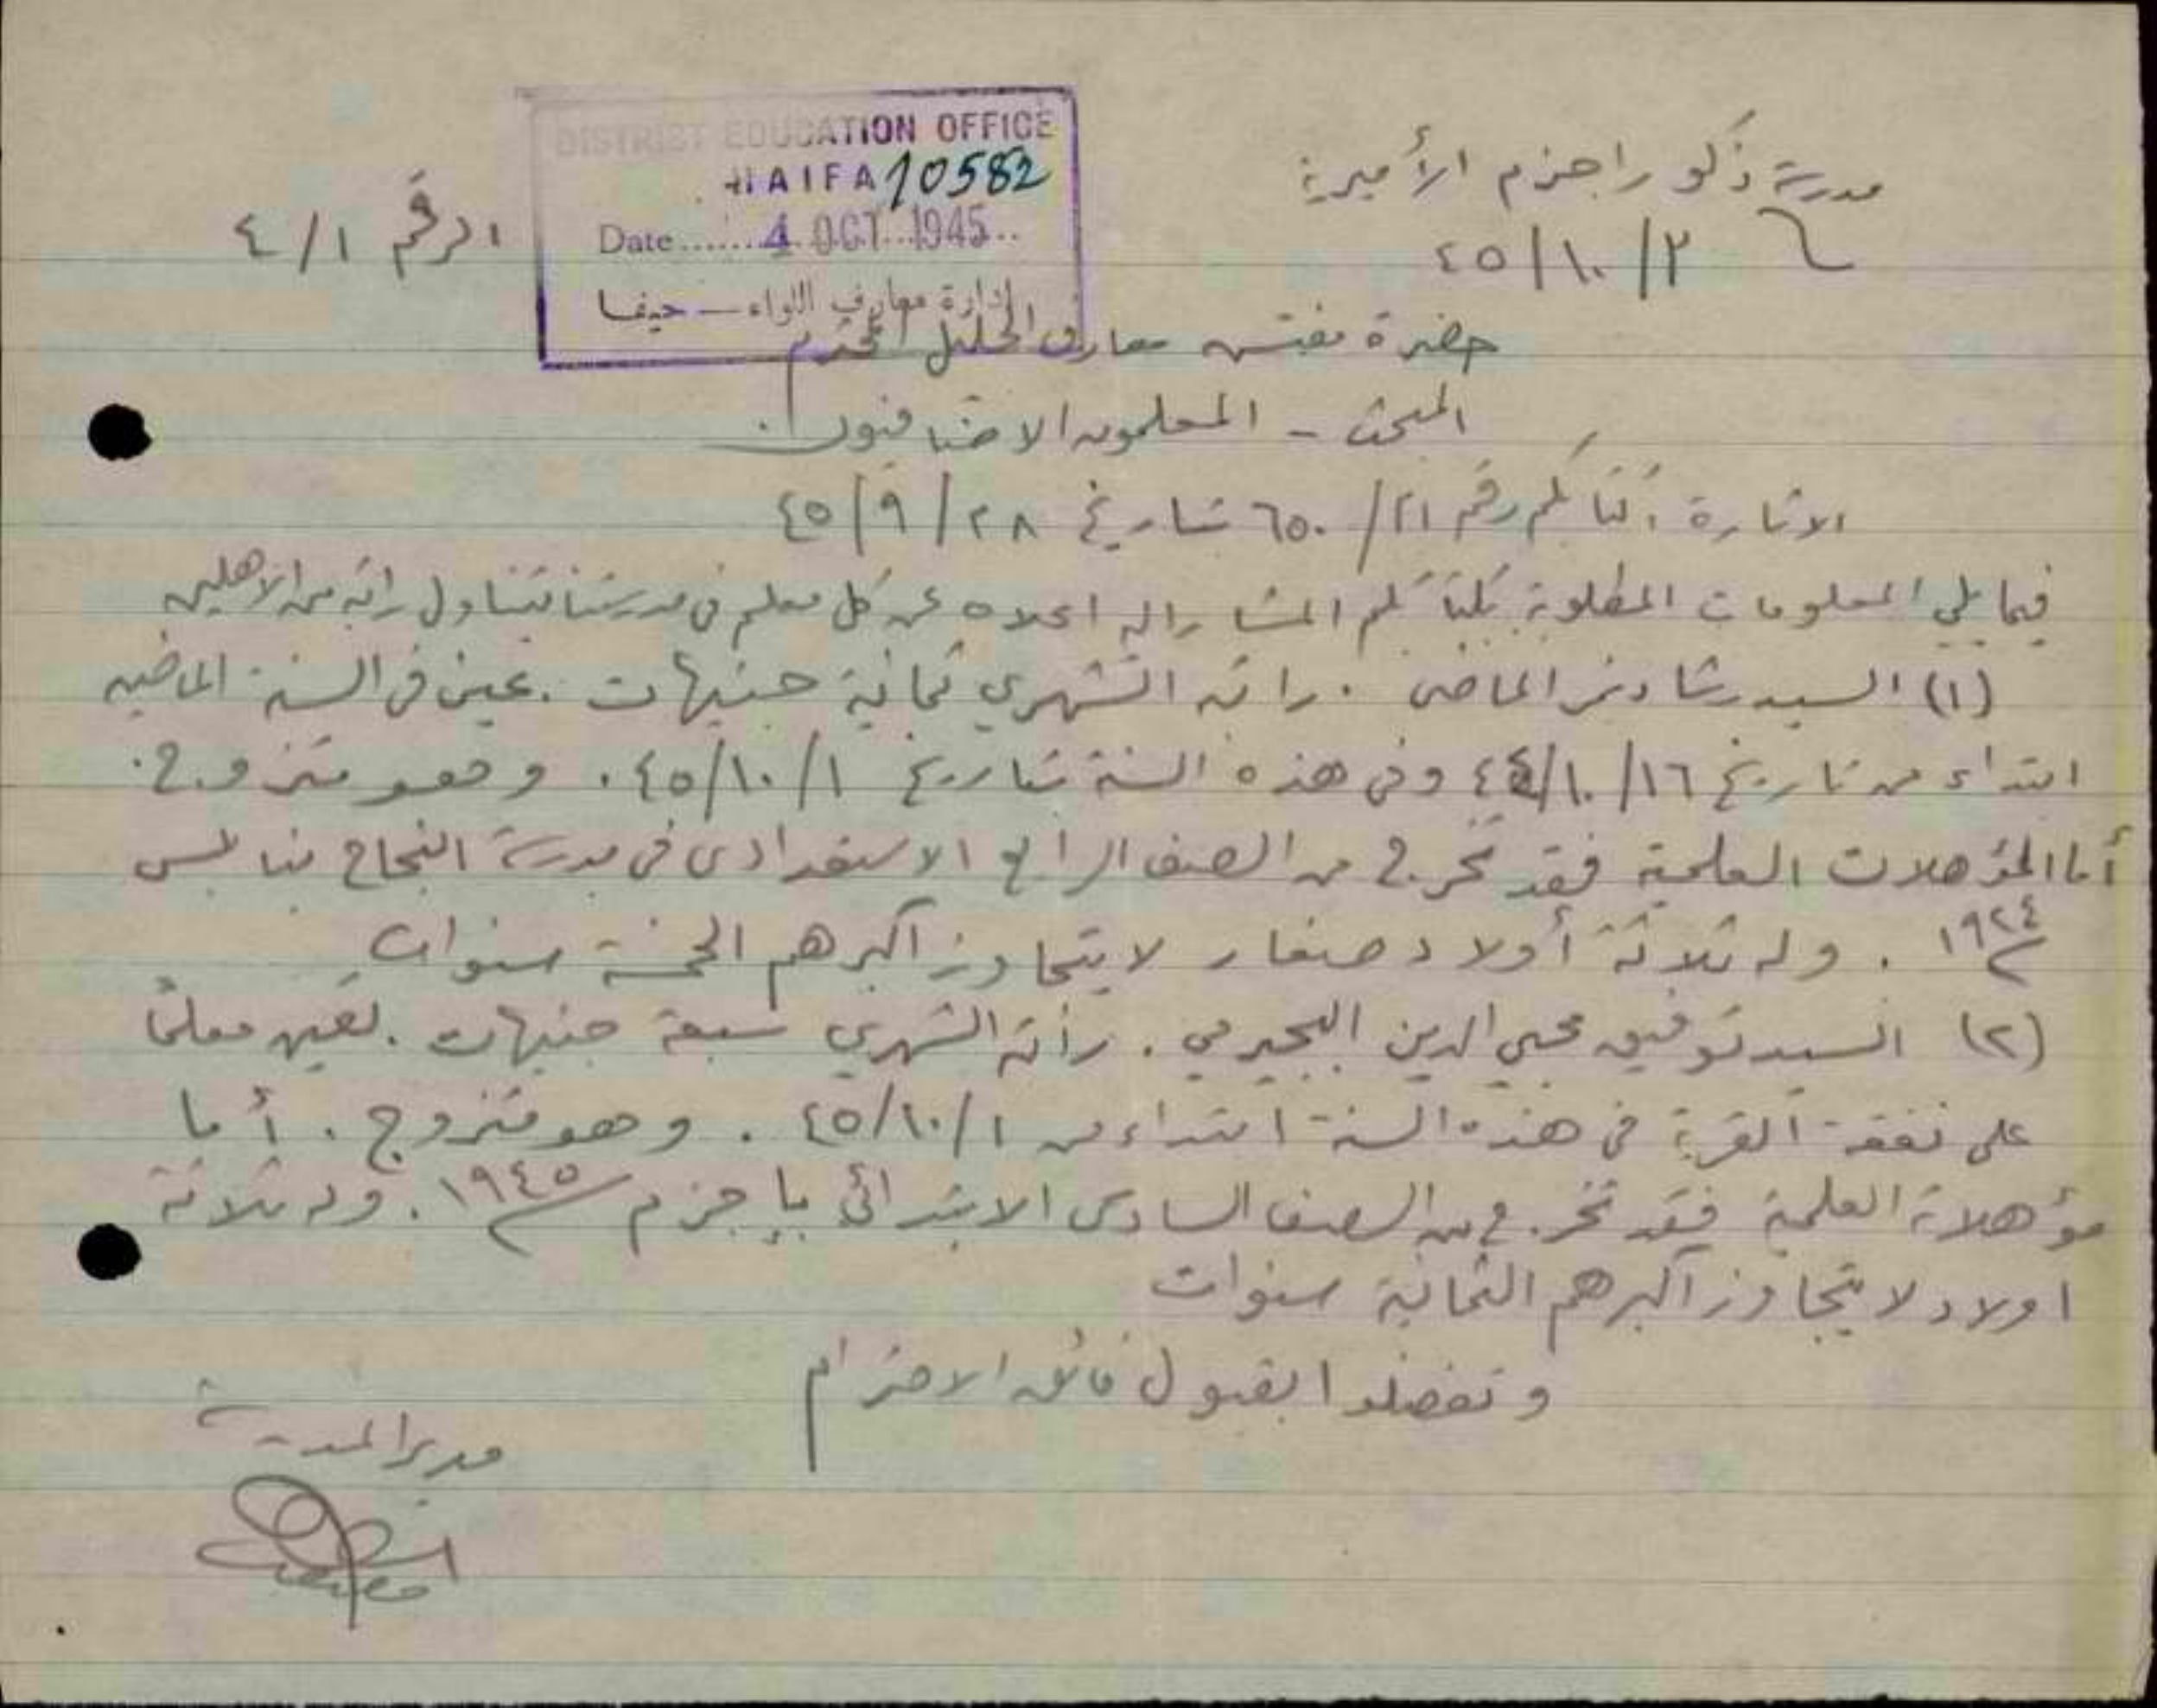 مدرسة ذكور اجزم الأميرية
٤٥/١٠/٢
الرقم ٤/١
DISTRICT EDUCATION OFFICE
HAIFA 10582
Date....... 4 OCT 1945..
إدارة معارف اللواء — حيفا
حضرة مفتش معارف الجليل المحترم
المبحث - المعلمون الاضافيون
الاشارة: كتابكم رقم ٦٥٠/٢١ بتاريخ ٤٥/٩/٢٨
فيما يلي المعلومات المطلوبة بكتابكم المشار اليه اعلاه عن كل معلم في مدرستنا يتناول راتبه من الاهلين
(١) السيد رشاد نمر الماضي . راتبه الشهري ثمانية جنيهات . عين في السنة الماضيه
ابتداء من تاريخ ٤٤/١٠/١٦ وفي هذه السنة بتاريخ ٤٥/١٠/١ . وهو متزوج .
أما المؤهلات العلمية فقد تخرج من الصف الرابع الاستعدادي في مدرسة النجاح بنابلس
١٩٢٤ . وله ثلاثة أولاد صغار لا يتجاوز اكبرهم الخمسة سنوات
(٢) السيد توفيق محيي الدين البجيرمي . راتبه الشهري سبعة جنيهات . تعين معلمًا
على نفقة القرية في هذه السنة ابتداء من ٤٥/١٠/١ . وهو متزوج . أما
مؤهلاته العلمية فقد تخرج من الصف السادس الابتدائي بإجزم ١٩٤٥ . وله ثلاثة
اولاد لا يتجاوز اكبرهم الثمانية سنوات
وتفضلوا بقبول فائق الاحترام
مدير المدرسة